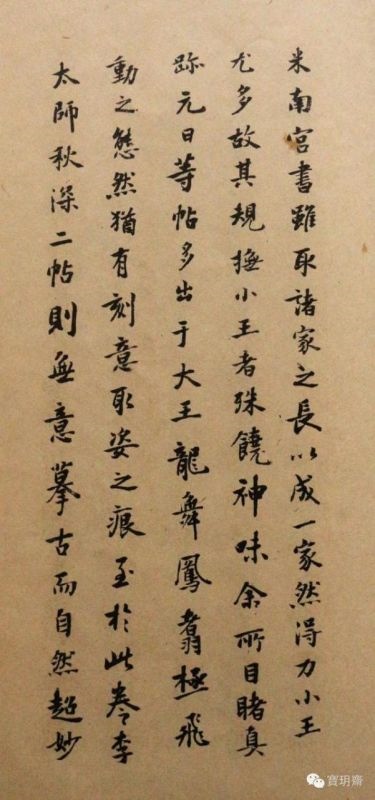 米南宮書雖取諸家之長以成一家然得力小王
尤多故其規撫小王者殊饒神味余所目睹真
跡元日等帖多出于大王龍舞鳳翥極飛
動之態然猶有刻意取姿之痕至於此卷李
太師秋深二帖則無意摹古而自然超妙
寶玥齋